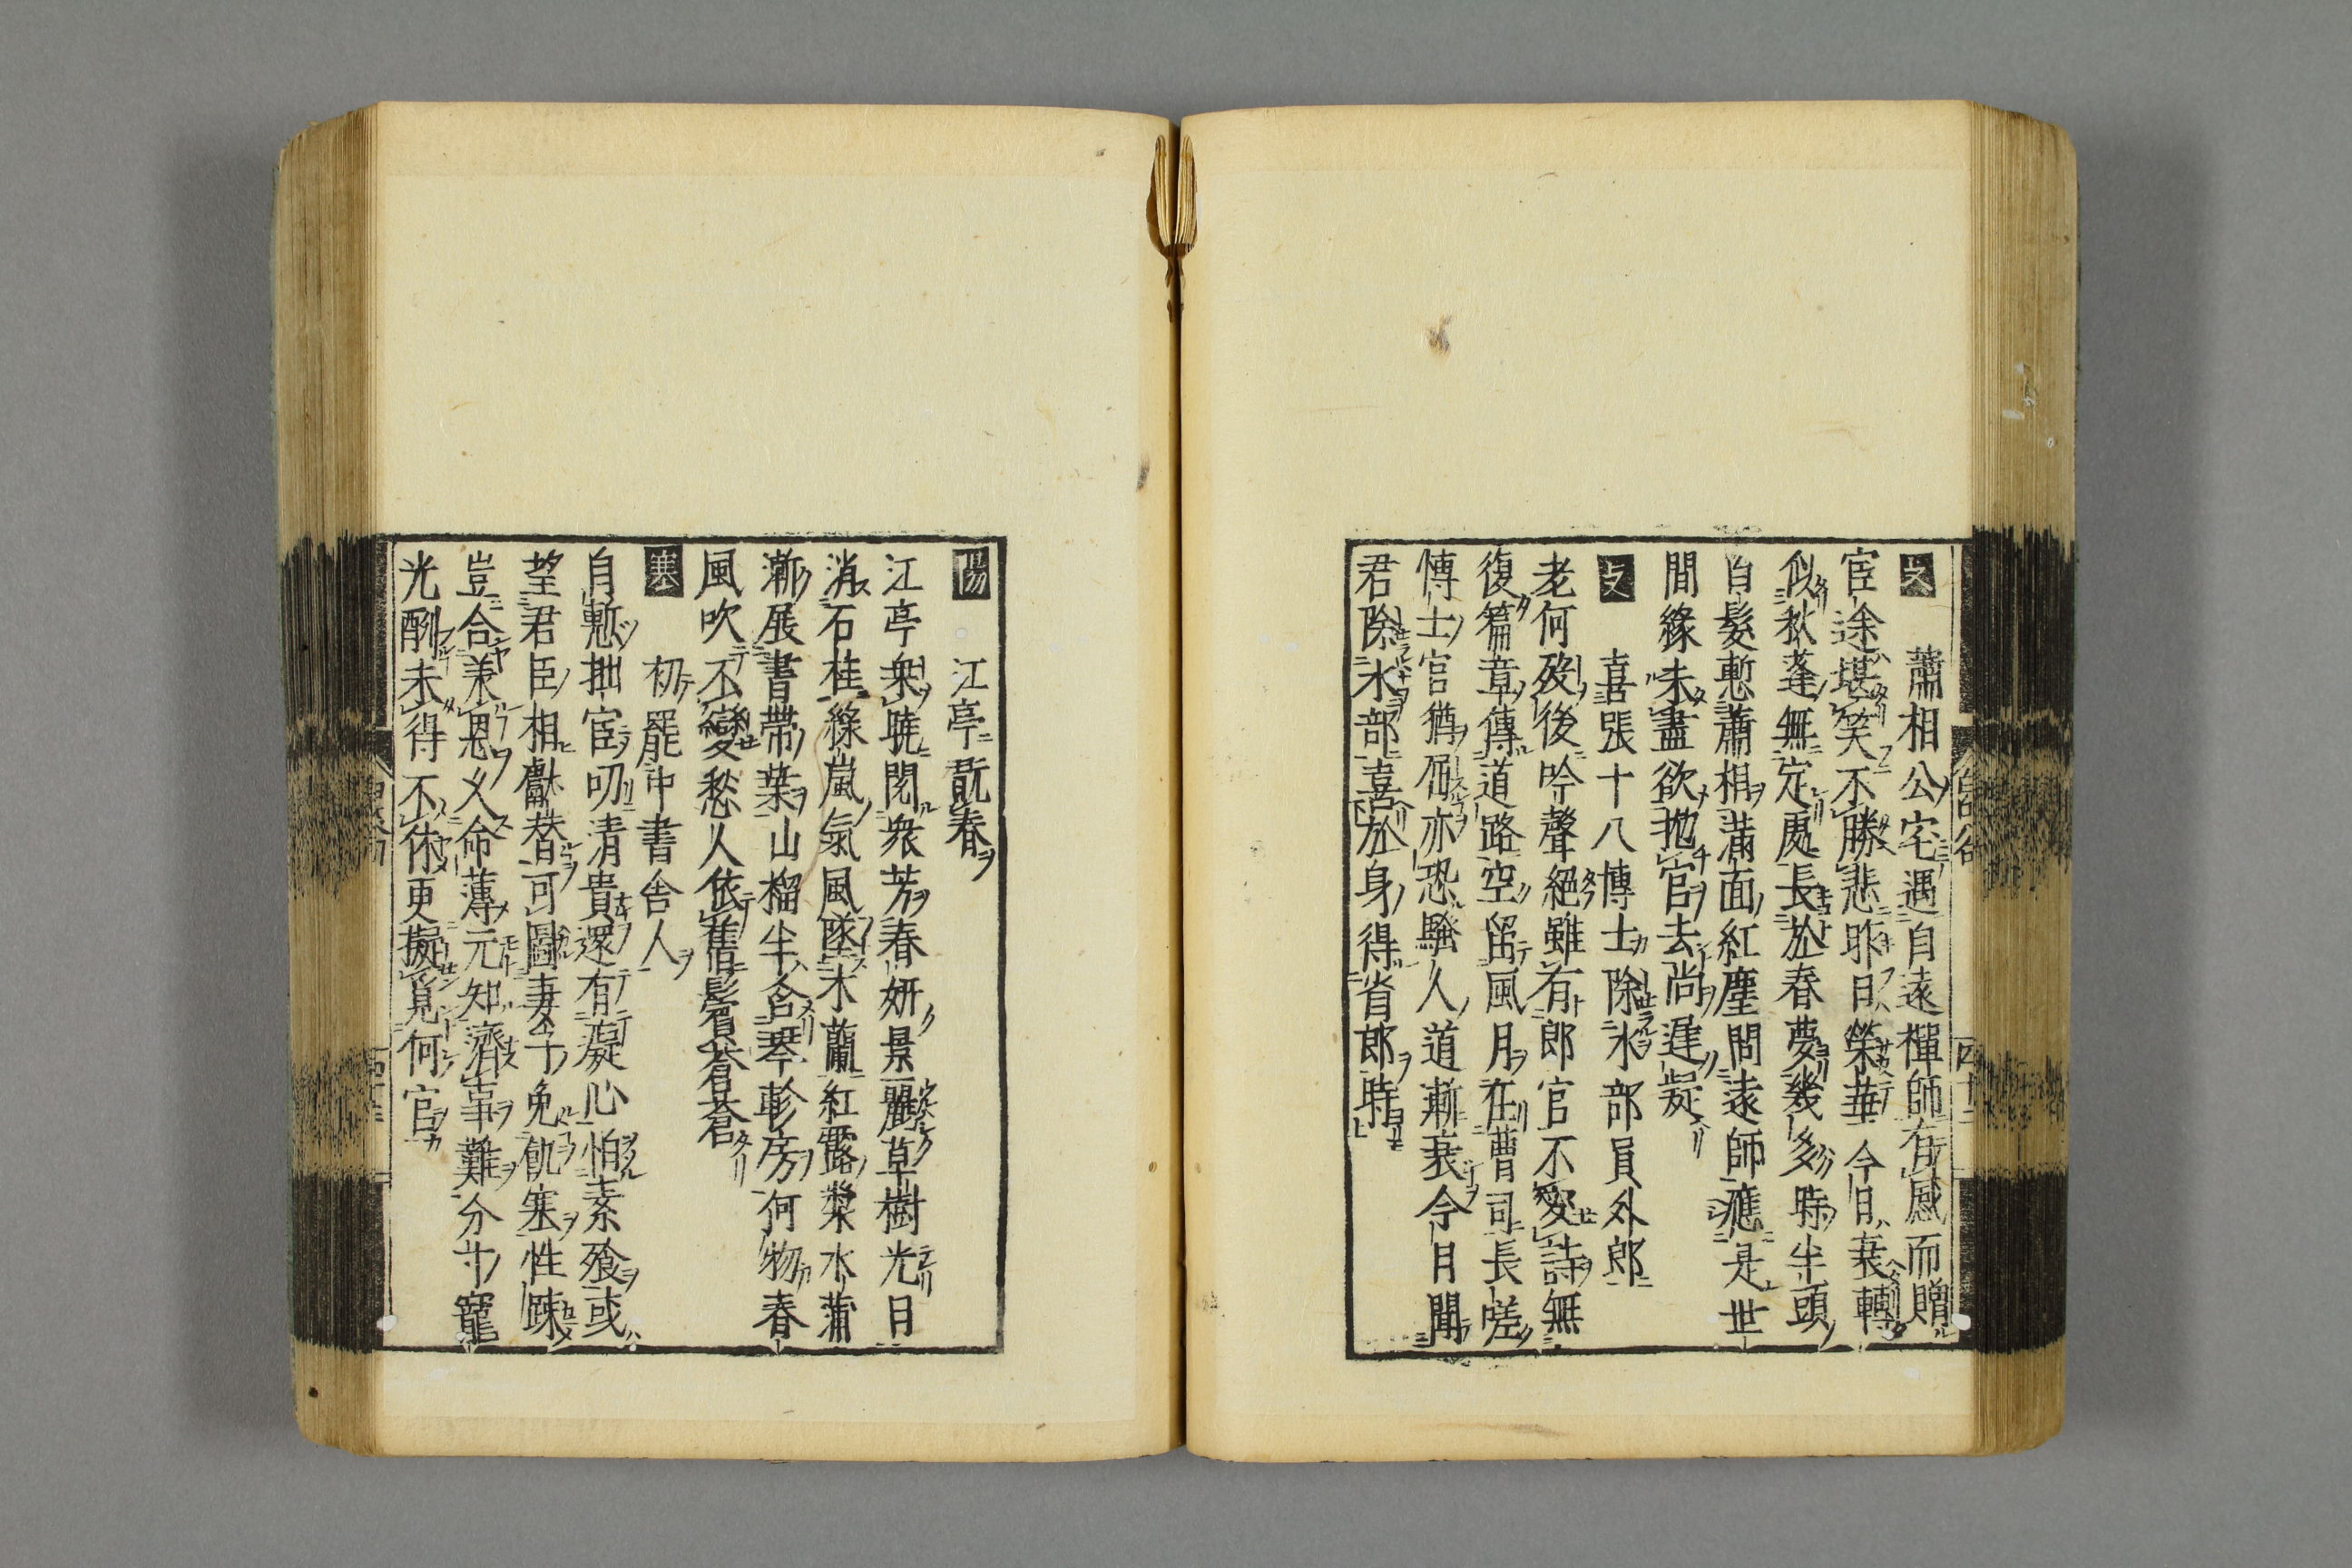 支 蕭相公宅遇自遠禪師有感而贈
宦途堪笑不勝悲昨日榮華今日衰轉
似秋蓬無定處長於春夢幾多時半頭
白髮慙蕭相滿面紅塵問遠師應是世
間緣未盡欲抛官去尚遲疑
支 喜張十八博士除水部員外郎
老何歿後吟聲絶雖有郎官不愛詩無
復篇章傳道路空留風月在曹司長嗟
博士官猶屈亦恐騷人道漸衰今月聞
君除水部喜於身得省郎時
陽 江亭翫春
江亭乗曉閱衆芳春妍景麗草樹光日
消石桂綠嵐氣風墜木蘭紅露漿水蒲
漸展書帶葉山榴半含琴軫房何物春
風吹不變愁人依舊鬢蒼蒼
寒 初罷中書舍人
自慙拙宦叨清貴還有癡心怕素飱或
望君臣相獻替可圖妻子免飢寒性踈
豈合兼恩乂命薄元知濟事難分寸寵
光酬未得不休更擬覓何官